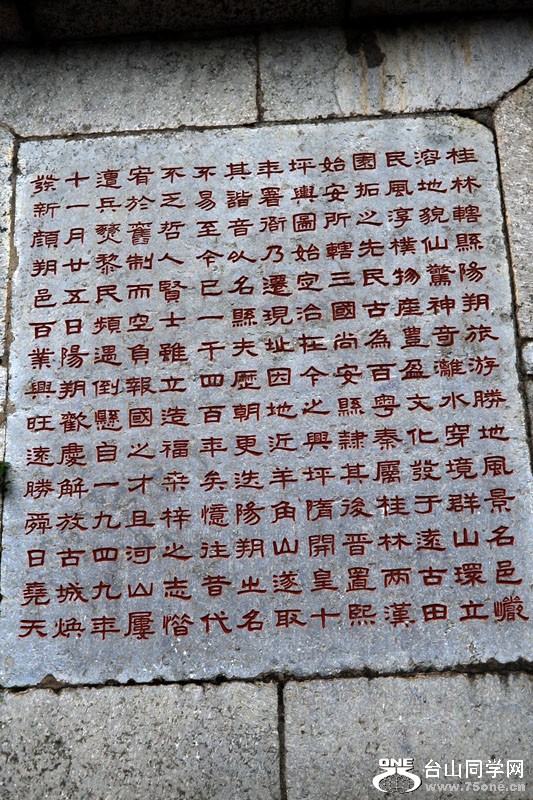 桂林轄縣陽朔旅游勝地風景名邑巘
溶地貌仙驚神奇灕水穿境群山環立
民風淳樸物產豐盈文化發于遠古田
園拓之先民古為百粵秦屬桂林兩漢
始安所轄三國尚安縣隸其後晉置熙
坪輿圖始定治在今之興坪隋開皇十
年署衙乃遷現址因地近羊角山遂取
其諧音以名縣夫歷朝更迭陽朔之名
不易至今已一千四百年矣憶往昔代
不乏哲人賢士雖立造福桑梓之志惜
宥於舊制而空自報國之才且河山屢
遭兵燹黎民頻遇倒懸自一九四九年
十一月廿五日陽朔歡慶解放古城煥
發新顏朔邑百業興旺遠勝舜日堯天
ONE 台山同学网
www.75one.cn